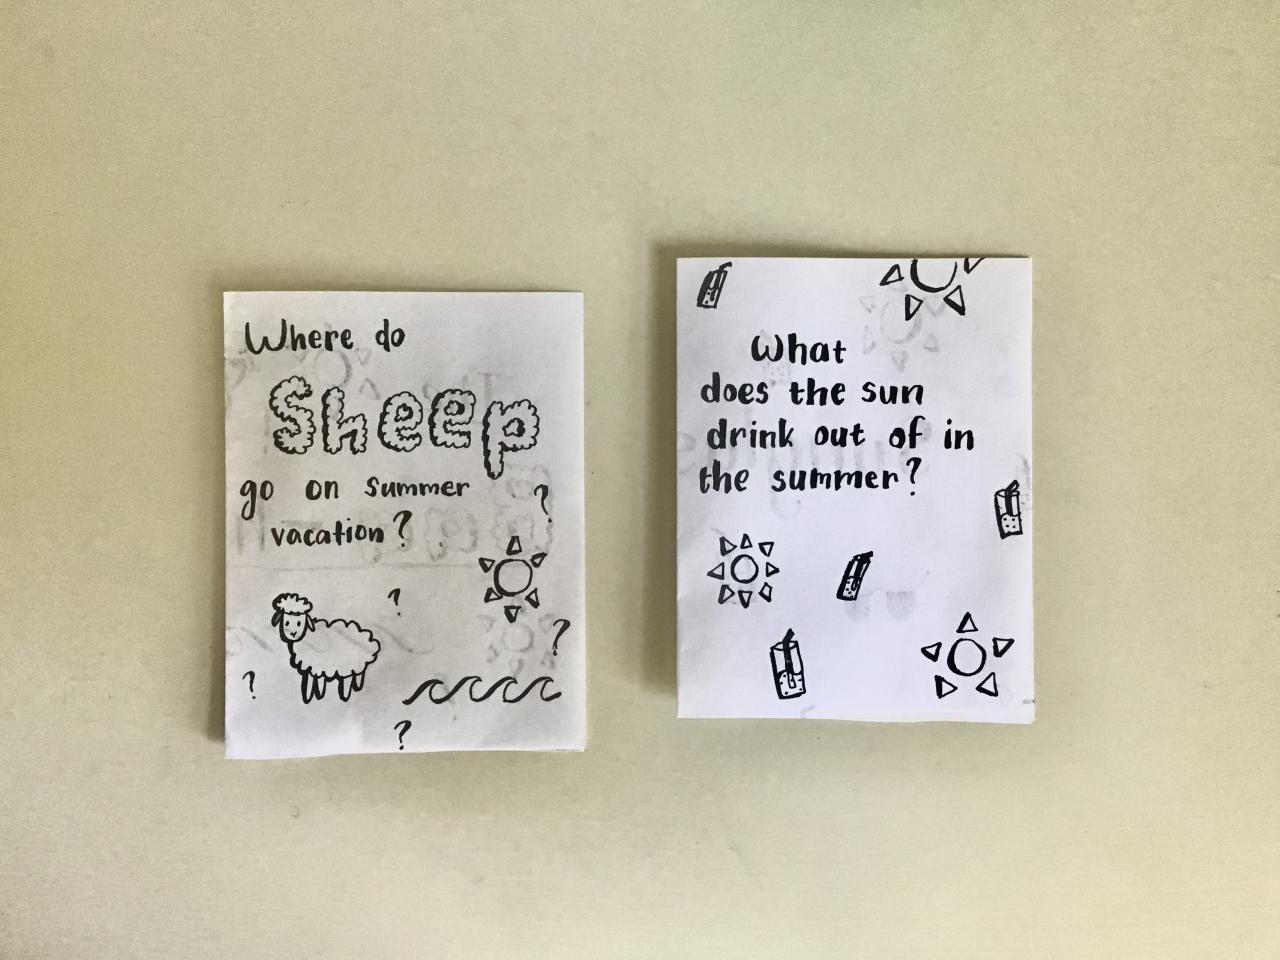 Where do
Sheep
go on summer
vacation?
?
?
?
?
?
What
does the sun
drink out of in
the summer?